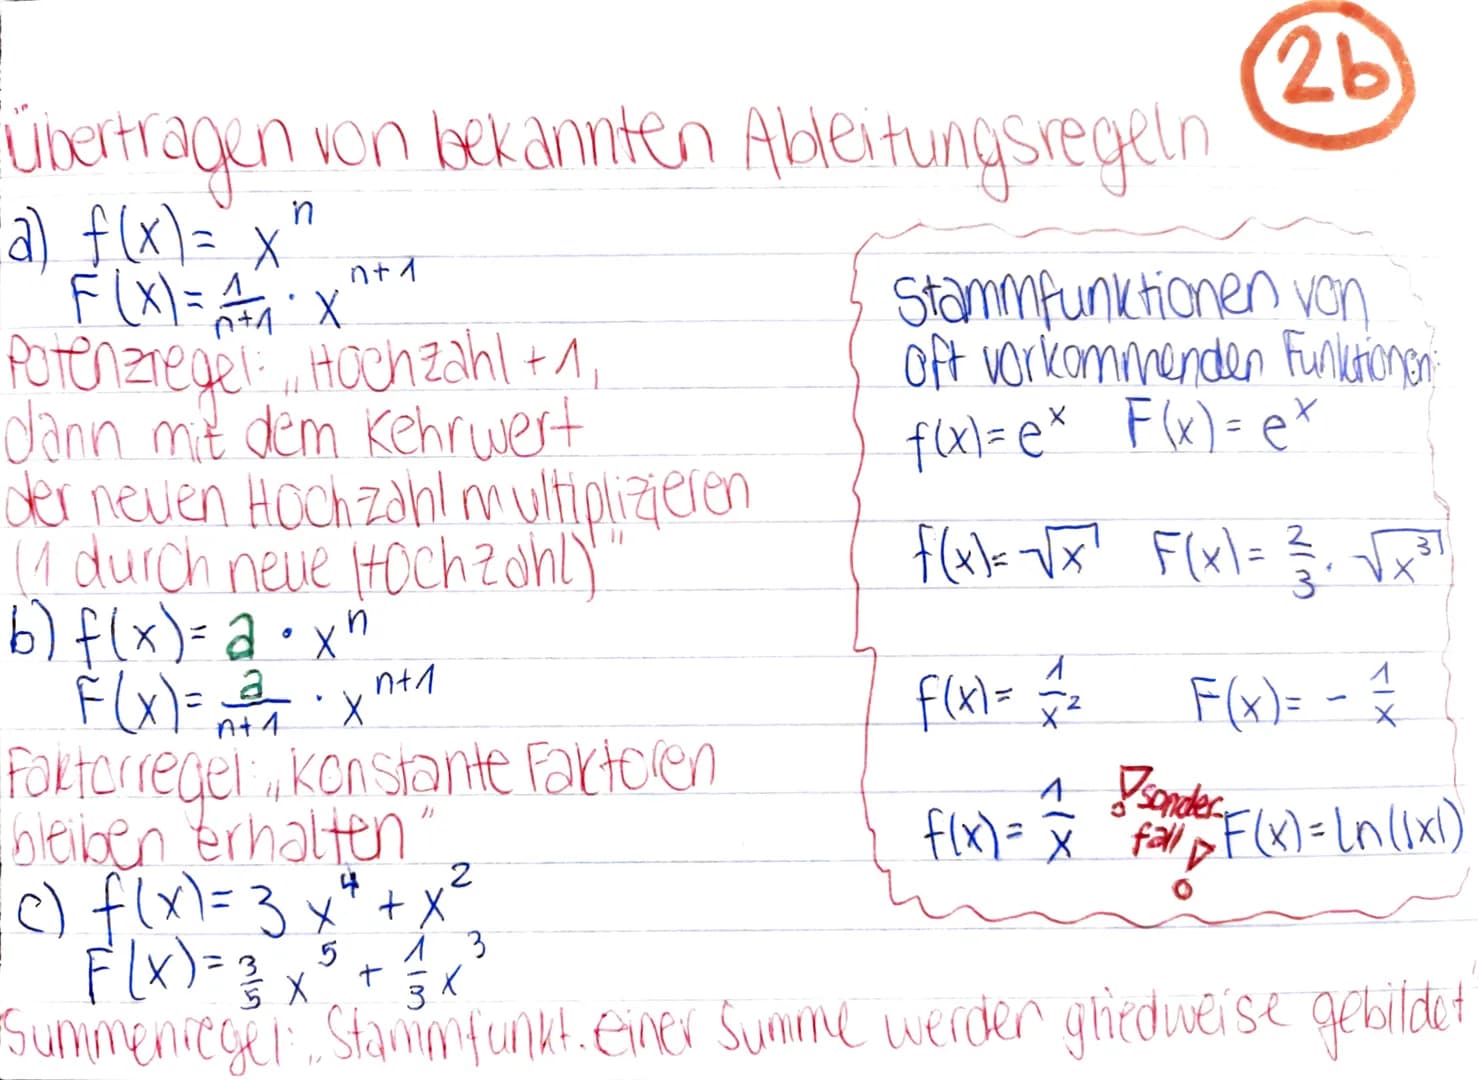 2b
Übertragen von bekannten Ableitungsregeln
a) f(x) = x^n
F(x) = 1/(n+1) · x^(n+1)
Potenzregel: „Hochzahl + 1,
dann mit dem Kehrwert
der neuen Hochzahl multiplizieren
(1 durch neue Hochzahl)"
b) f(x) = a · x^n
F(x) = a/(n+1) · x^(n+1)
Faktorregel: „Konstante Faktoren
bleiben erhalten"
c) f(x) = 3x^4 + x^2
F(x) = 3/5 x^5 + 1/3 x^3
Summenregel: „Stammfunkt. einer Summe werden gliedweise gebildet"
Stammfunktionen von
oft vorkommenden Funktionen:
f(x) = e^x F(x) = e^x
f(x) = √x F(x) = 2/3 · √x^3
f(x) = 1/x^2 F(x) = - 1/x
f(x) = 1/x ! sonder- F(x) = ln(|x|)
fall !